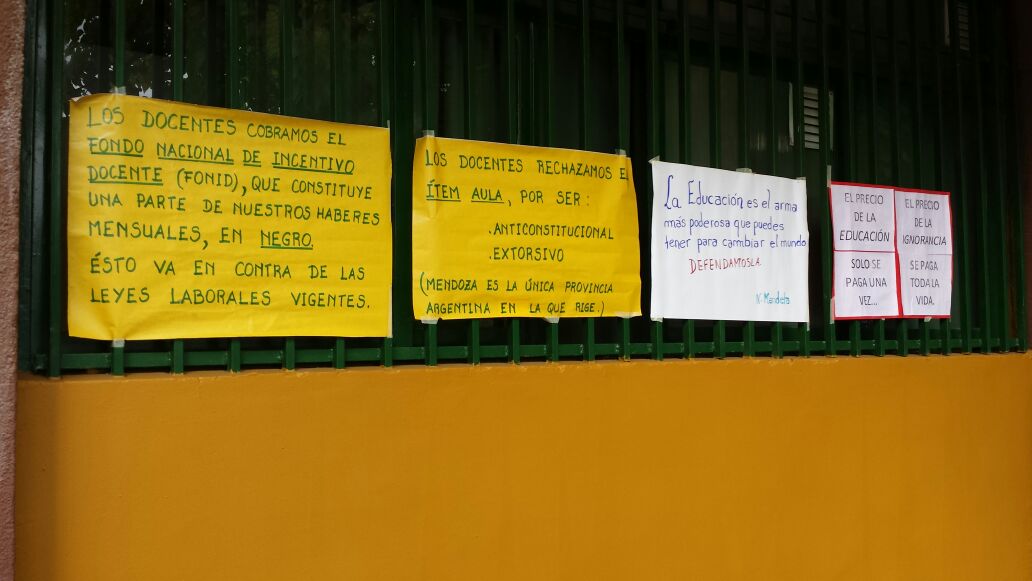 LOS DOCENTES COBRAMOS EL
FONDO NACIONAL DE INCENTIVO
DOCENTE (FONID), QUE CONSTITUYE
UNA PARTE DE NUESTROS HABERES
MENSUALES, EN NEGRO.
ÉSTO VA EN CONTRA DE LAS
LEYES LABORALES VIGENTES.
LOS DOCENTES RECHAZAMOS EL
ÍTEM AULA, POR SER:
.ANTICONSTITUCIONAL
.EXTORSIVO
(MENDOZA ES LA ÚNICA PROVINCIA
ARGENTINA EN LA QUE RIGE.)
La Educación es el arma
más poderosa que puedes
tener para cambiar el mundo
DEFENDAMOSLA
N. Mandela
EL PRECIO
DE LA
EDUCACIÓN
SOLO SE
PAGA UNA
VEZ...
EL PRECIO
DE LA
IGNORANCIA
SE PAGA
TODA LA
VIDA.